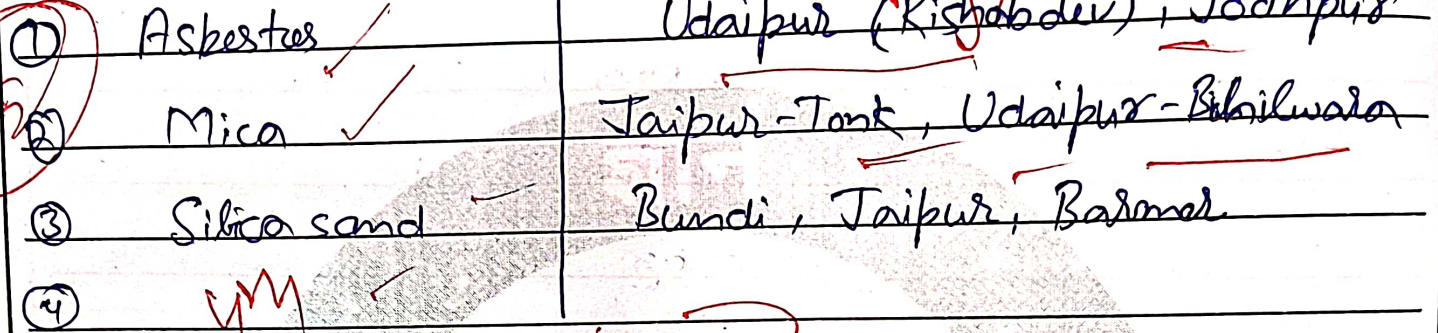 ① Asbestos Udaipur (Rishabdev), Jodhpur
② Mica Jaipur-Tonk, Udaipur-Bhilwara
③ Silica sand Bundi, Jaipur, Barmer
④